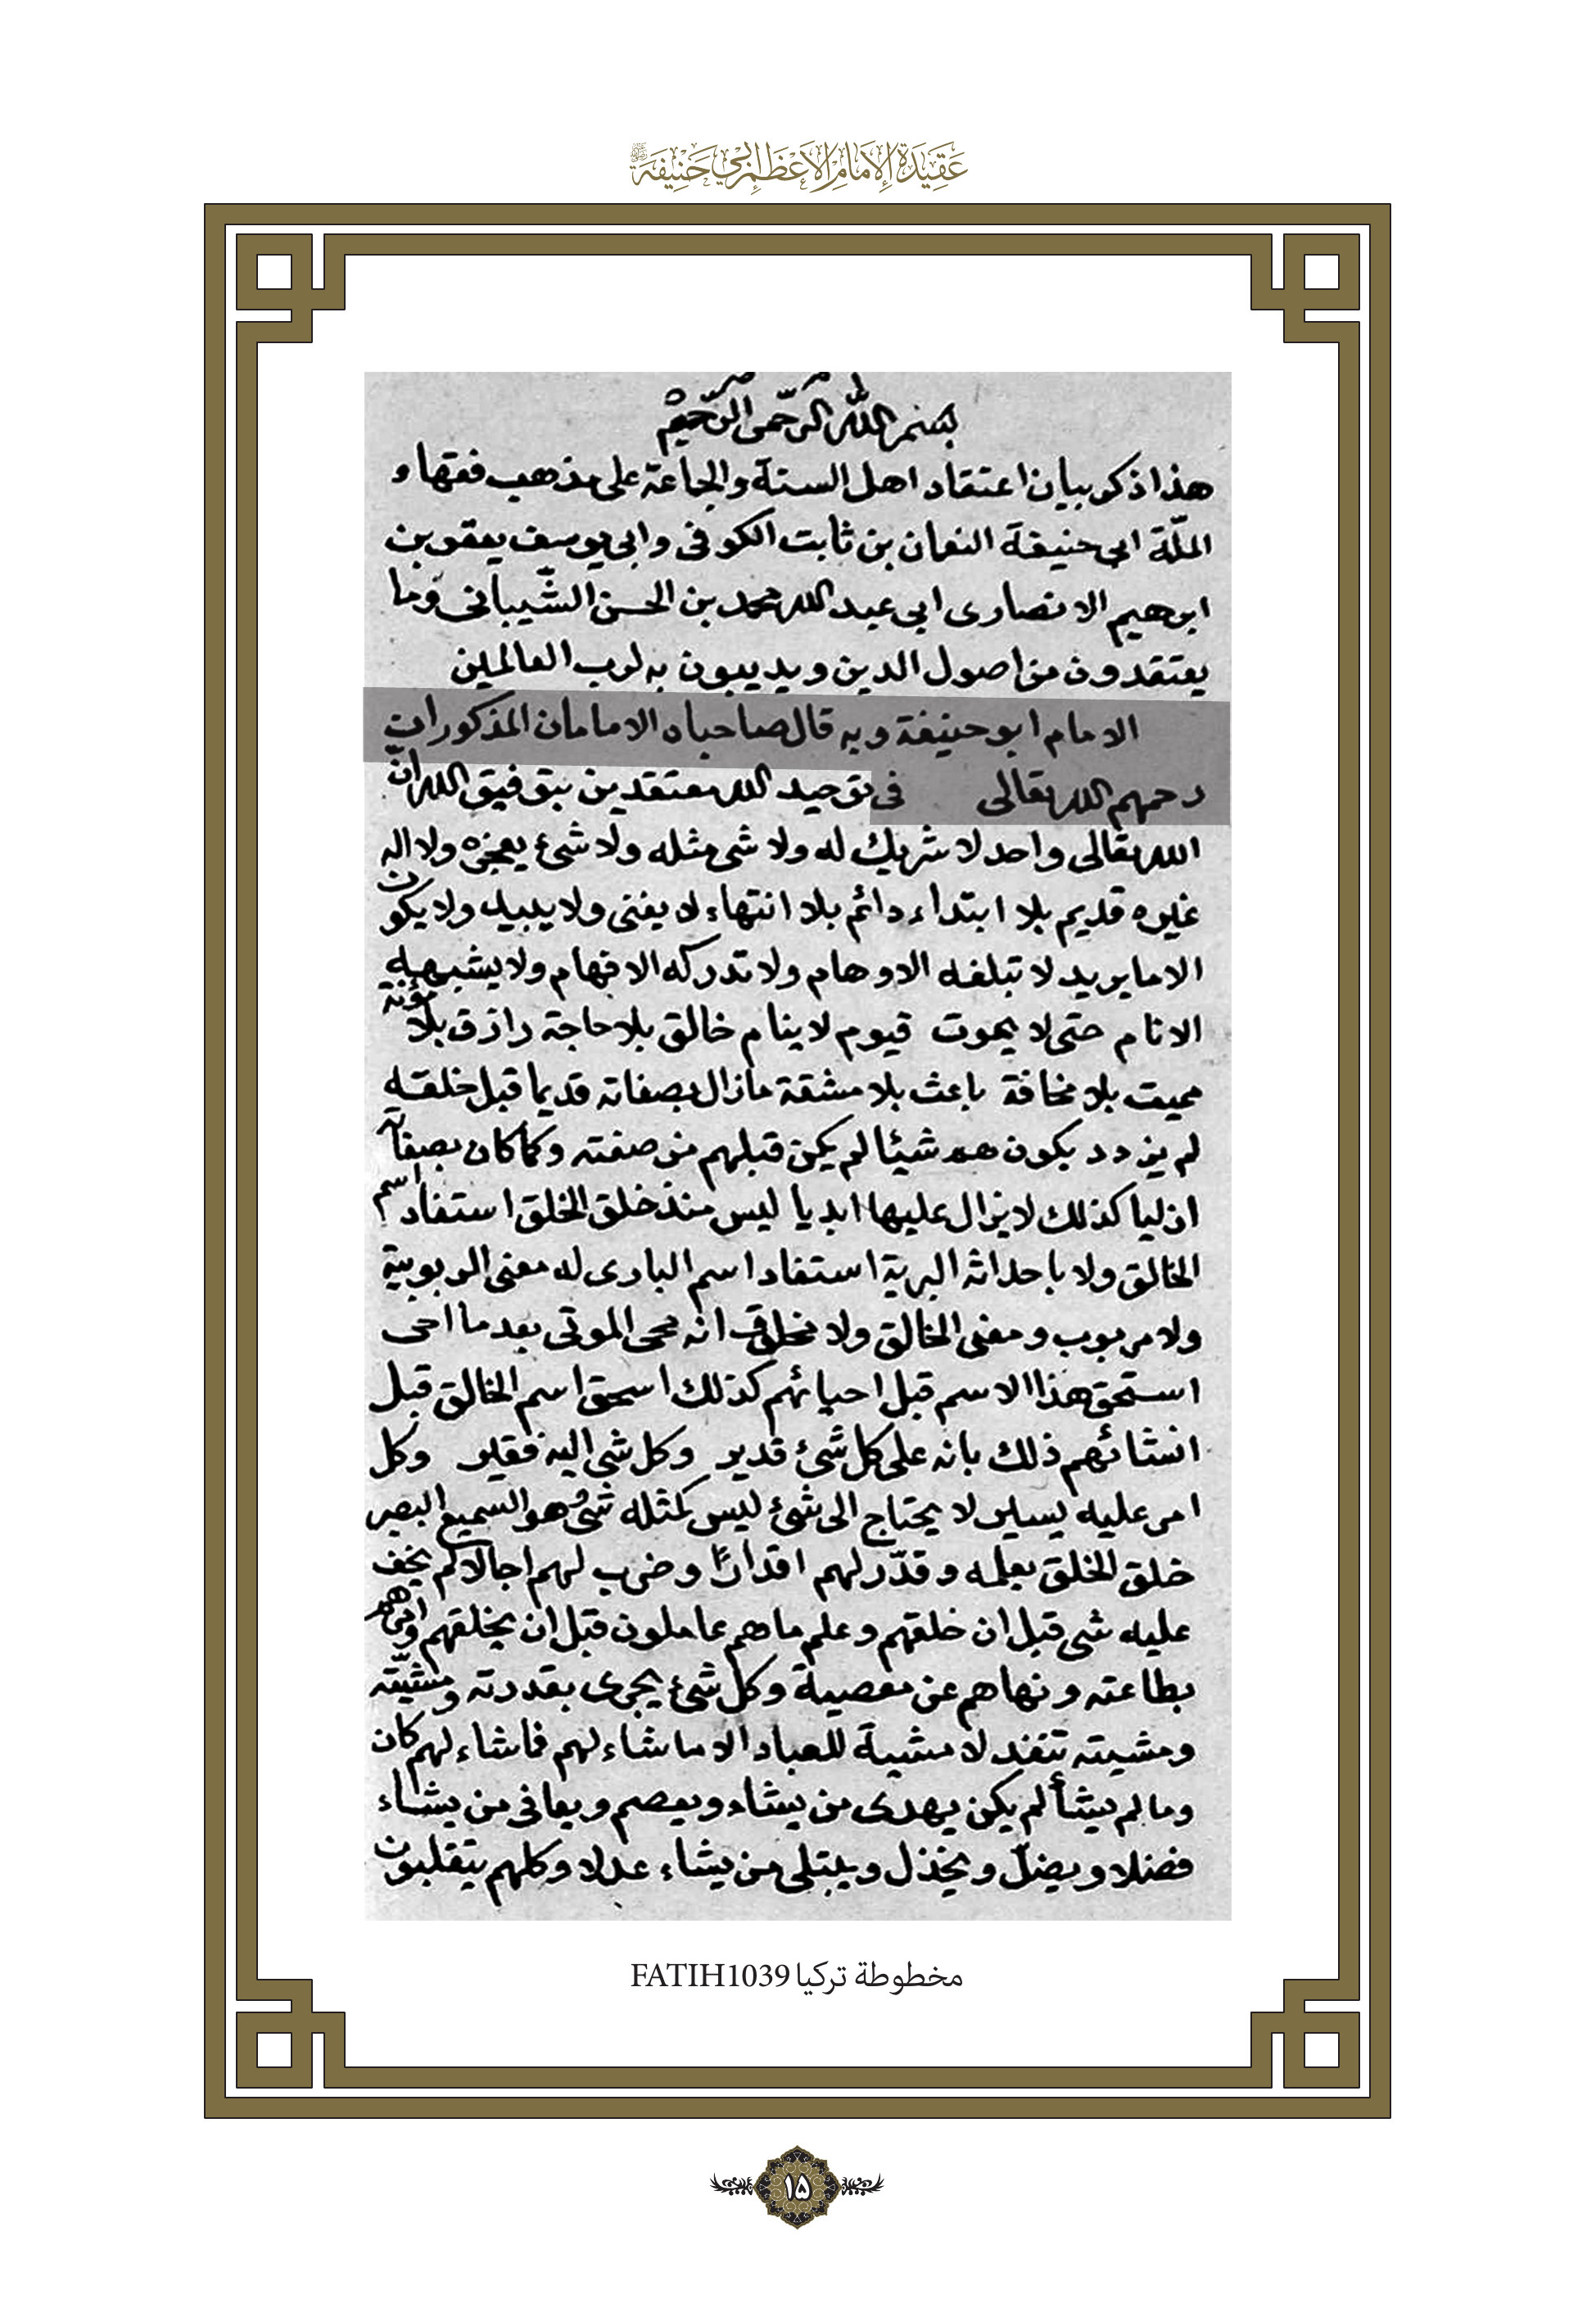 عَقِيدَةُ الإِمَامِ الأَعْظَمِ أَبِي حَنِيفَةَ
بسم الله الرحمن الرحيم
هذا ذكر بيان اعتقاد اهل السنة والجماعة على مذهب فقهاء
الملّة ابى حنيفة النعمان بن ثابت الكوفى وابى يوسف يعقوب بن
ابرهيم الانصارى ابى عبد الله محمد بن الحسن الشّيبانى وما
يعتقدون من اصول الدين ويدينون به لرب العالمين
الامام ابو حنيفة وبه قال صاحباه الامامان المذكورات
رحمهم الله تعالى فى توحيد الله معتقدين بتوفيق الله انّ
الله تعالى واحد لا شريك له ولا شى مثله ولا شئ يعجزه ولا اله
غيره قديم بلا ابتداء دائم بلا انتهاء لا يفنى ولا يبيد ولا يكون
الا ما يريد لا تبلغه الاوهام ولا تدركه الافهام ولا يشبهه
الانام حى لا يموت قيوم لا ينام خالق بلا حاجة رازق بلا مؤنة
مميت بلا مخافة باعث بلا مشقة مازال بصفاته قديما قبل خلقه
لم يزدد بكونهم شيئا لم يكن قبلهم من صفته وكما كان بصفاته
ازليا كذلك لا يزال عليها ابديا ليس منذ خلق الخلق استفاد اسم
الخالق ولا باحداثه البرية استفاد اسم البارى له معنى الربوبية
ولا مربوب ومعنى الخالق ولا مخلوق انه محى الموتى بعد ما احى
استحق هذا الاسم قبل احيائهم كذلك اسحق اسم الخالق قبل
انشائهم ذلك بانه على كل شئ قدير وكل شى اليه فقير وكل
امر عليه يسير لا يحتاج الى شئ ليس كمثله شئ وهو السميع البصير
خلق الخلق بعلمه وقدّر لهم اقدارًا وضرب لهم اجالا لم يخف
عليه شى قبل ان خلقهم وعلم ما هم عاملون قبل ان يخلقهم وامرهم
بطاعته ونهاهم عن معصية وكل شئ يجرى بقدرته ومشيّته
ومشيته تنفذ لا مشية للعباد الا ما شاء لهم فما شاء لهم كان
وما لم يشأ لم يكن يهدى من يشاء ويعصم ويعافى من يشاء
فضلا ويضلّ ويخذل ويبتلى من يشاء عدلا وكلهم يتقلبون
مخطوطة تركيا FATIH1039
١٥